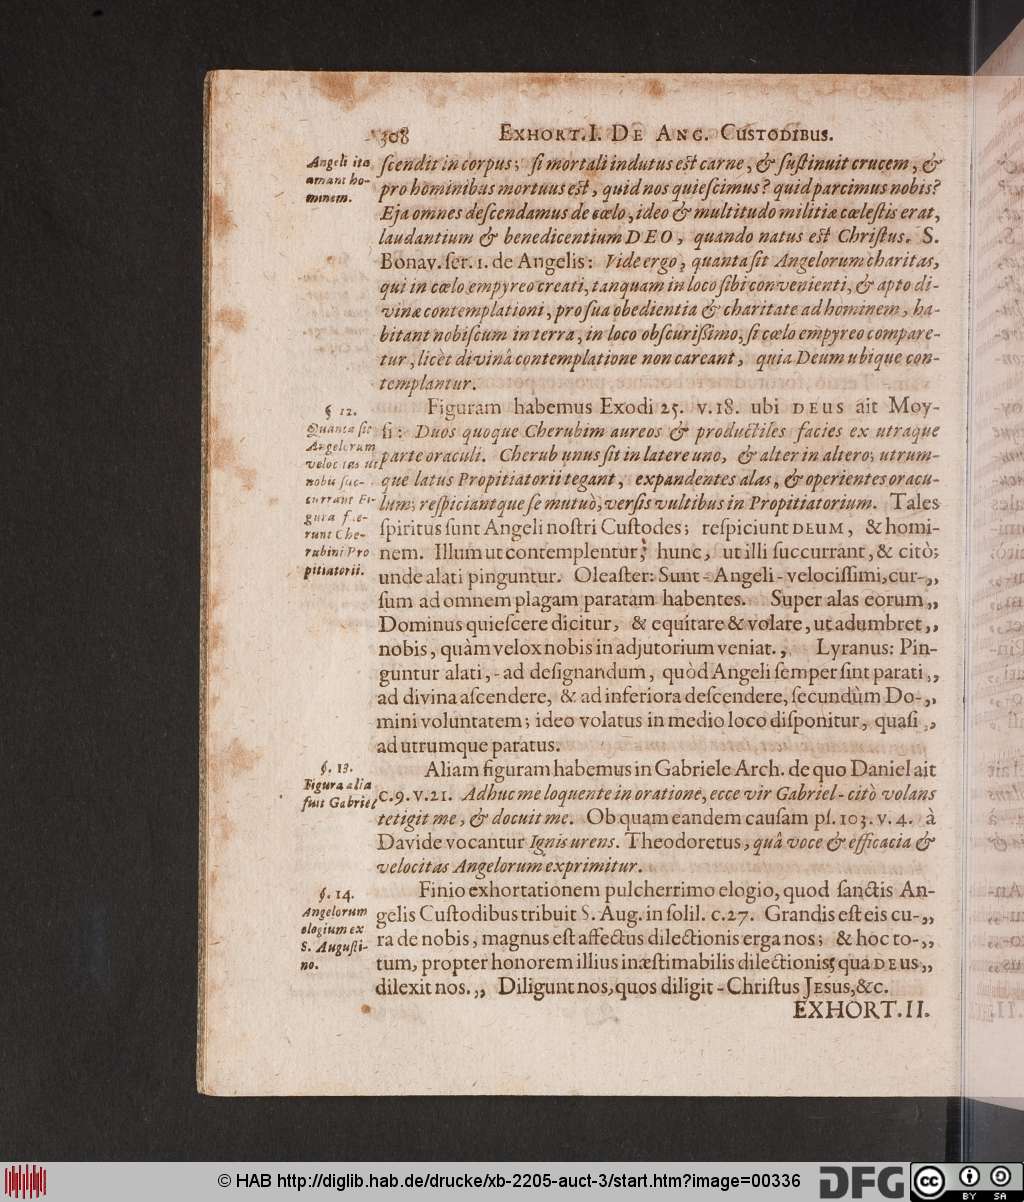 308 EXHORT. I. DE ANG. CUSTODIBUS.
Angeli ita
amant ho-
minem.
ſcendit in corpus; ſi mortali indutus est carne, & ſuſtinuit crucem, &
pro hominibus mortuus est, quid nos quieſcimus? quid parcimus nobis?
Eja omnes deſcendamus de cœlo, ideo & multitudo militiæ cœleſtis erat,
laudantium & benedicentium DEO, quando natus est Chriſtus. S.
Bonav. ſer. 1. de Angelis: Vide ergo, quanta ſit Angelorum charitas,
qui in cœlo empyreo creati, tanquam in loco ſibi convenienti, & apto di-
vinæ contemplationi, pro ſua obedientia & charitate ad hominem, ha-
bitant nobiſcum in terra, in loco obſcuriſſimo, ſi cœlo empyreo compare-
tur, licèt divinâ contemplatione non careant, quia Deum ubique con-
templantur.
§ 12.
Quanta ſit
Angelorum
velocitas ut
nobis ſuc-
currant Fi-
gura fue-
runt Che-
rubini Pro
pitiatorii.
Figuram habemus Exodi 25. v. 18. ubi DEUS ait Moy-
ſi: Duos quoque Cherubim aureos & productiles facies ex utraque
parte oraculi. Cherub unus ſit in latere uno, & alter in altero; utrum-
que latus Propitiatorii tegant, expandentes alas, & operientes oracu-
lum; reſpiciantque ſe mutuò, verſis vultibus in Propitiatorium. Tales
ſpiritus ſunt Angeli noſtri Cuſtodes; reſpiciunt DEUM, & homi-
nem. Illum ut contemplentur; hunc, ut illi ſuccurrant, & citò;
unde alati pinguntur. Oleaſter: Sunt - Angeli - velociſſimi, cur-„
ſum ad omnem plagam paratam habentes. Super alas eorum „
Dominus quieſcere dicitur, & equitare & volare, ut adumbret „
nobis, quàm velox nobis in adjutorium veniat. „ Lyranus: Pin-
guntur alati, - ad deſignandum, quòd Angeli ſemper ſint parati „
ad divina aſcendere, & ad inferiora deſcendere, ſecundùm Do-„
mini voluntatem; ideo volatus in medio loco diſponitur, quaſi „
ad utrumque paratus.
§. 13.
Figura alia
fuit Gabriel
Aliam figuram habemus in Gabriele Arch. de quo Daniel ait
c. 9. v. 21. Adhuc me loquente in oratione, ecce vir Gabriel - citò volans
tetigit me, & docuit me. Ob quam eandem cauſam pſ. 103. v. 4. à
Davide vocantur Ignis urens. Theodoretus, quâ voce & efficacia &
velocitas Angelorum exprimitur.
§. 14.
Angelorum
elogium ex
S. Auguſti-
no.
Finio exhortationem pulcherrimo elogio, quod ſanctis An-
gelis Cuſtodibus tribuit S. Aug. in ſolil. c. 27. Grandis eſt eis cu-„
ra de nobis, magnus eſt affectus dilectionis erga nos; & hoc to-„
tum, propter honorem illius inæſtimabilis dilectionis, qua DEUS „
dilexit nos. „ Diligunt nos, quos diligit - Chriſtus JESUS, &c.
EXHORT. II.
© HAB http://diglib.hab.de/drucke/xb-2205-auct-3/start.htm?image=00336
DFG
cc BY SA